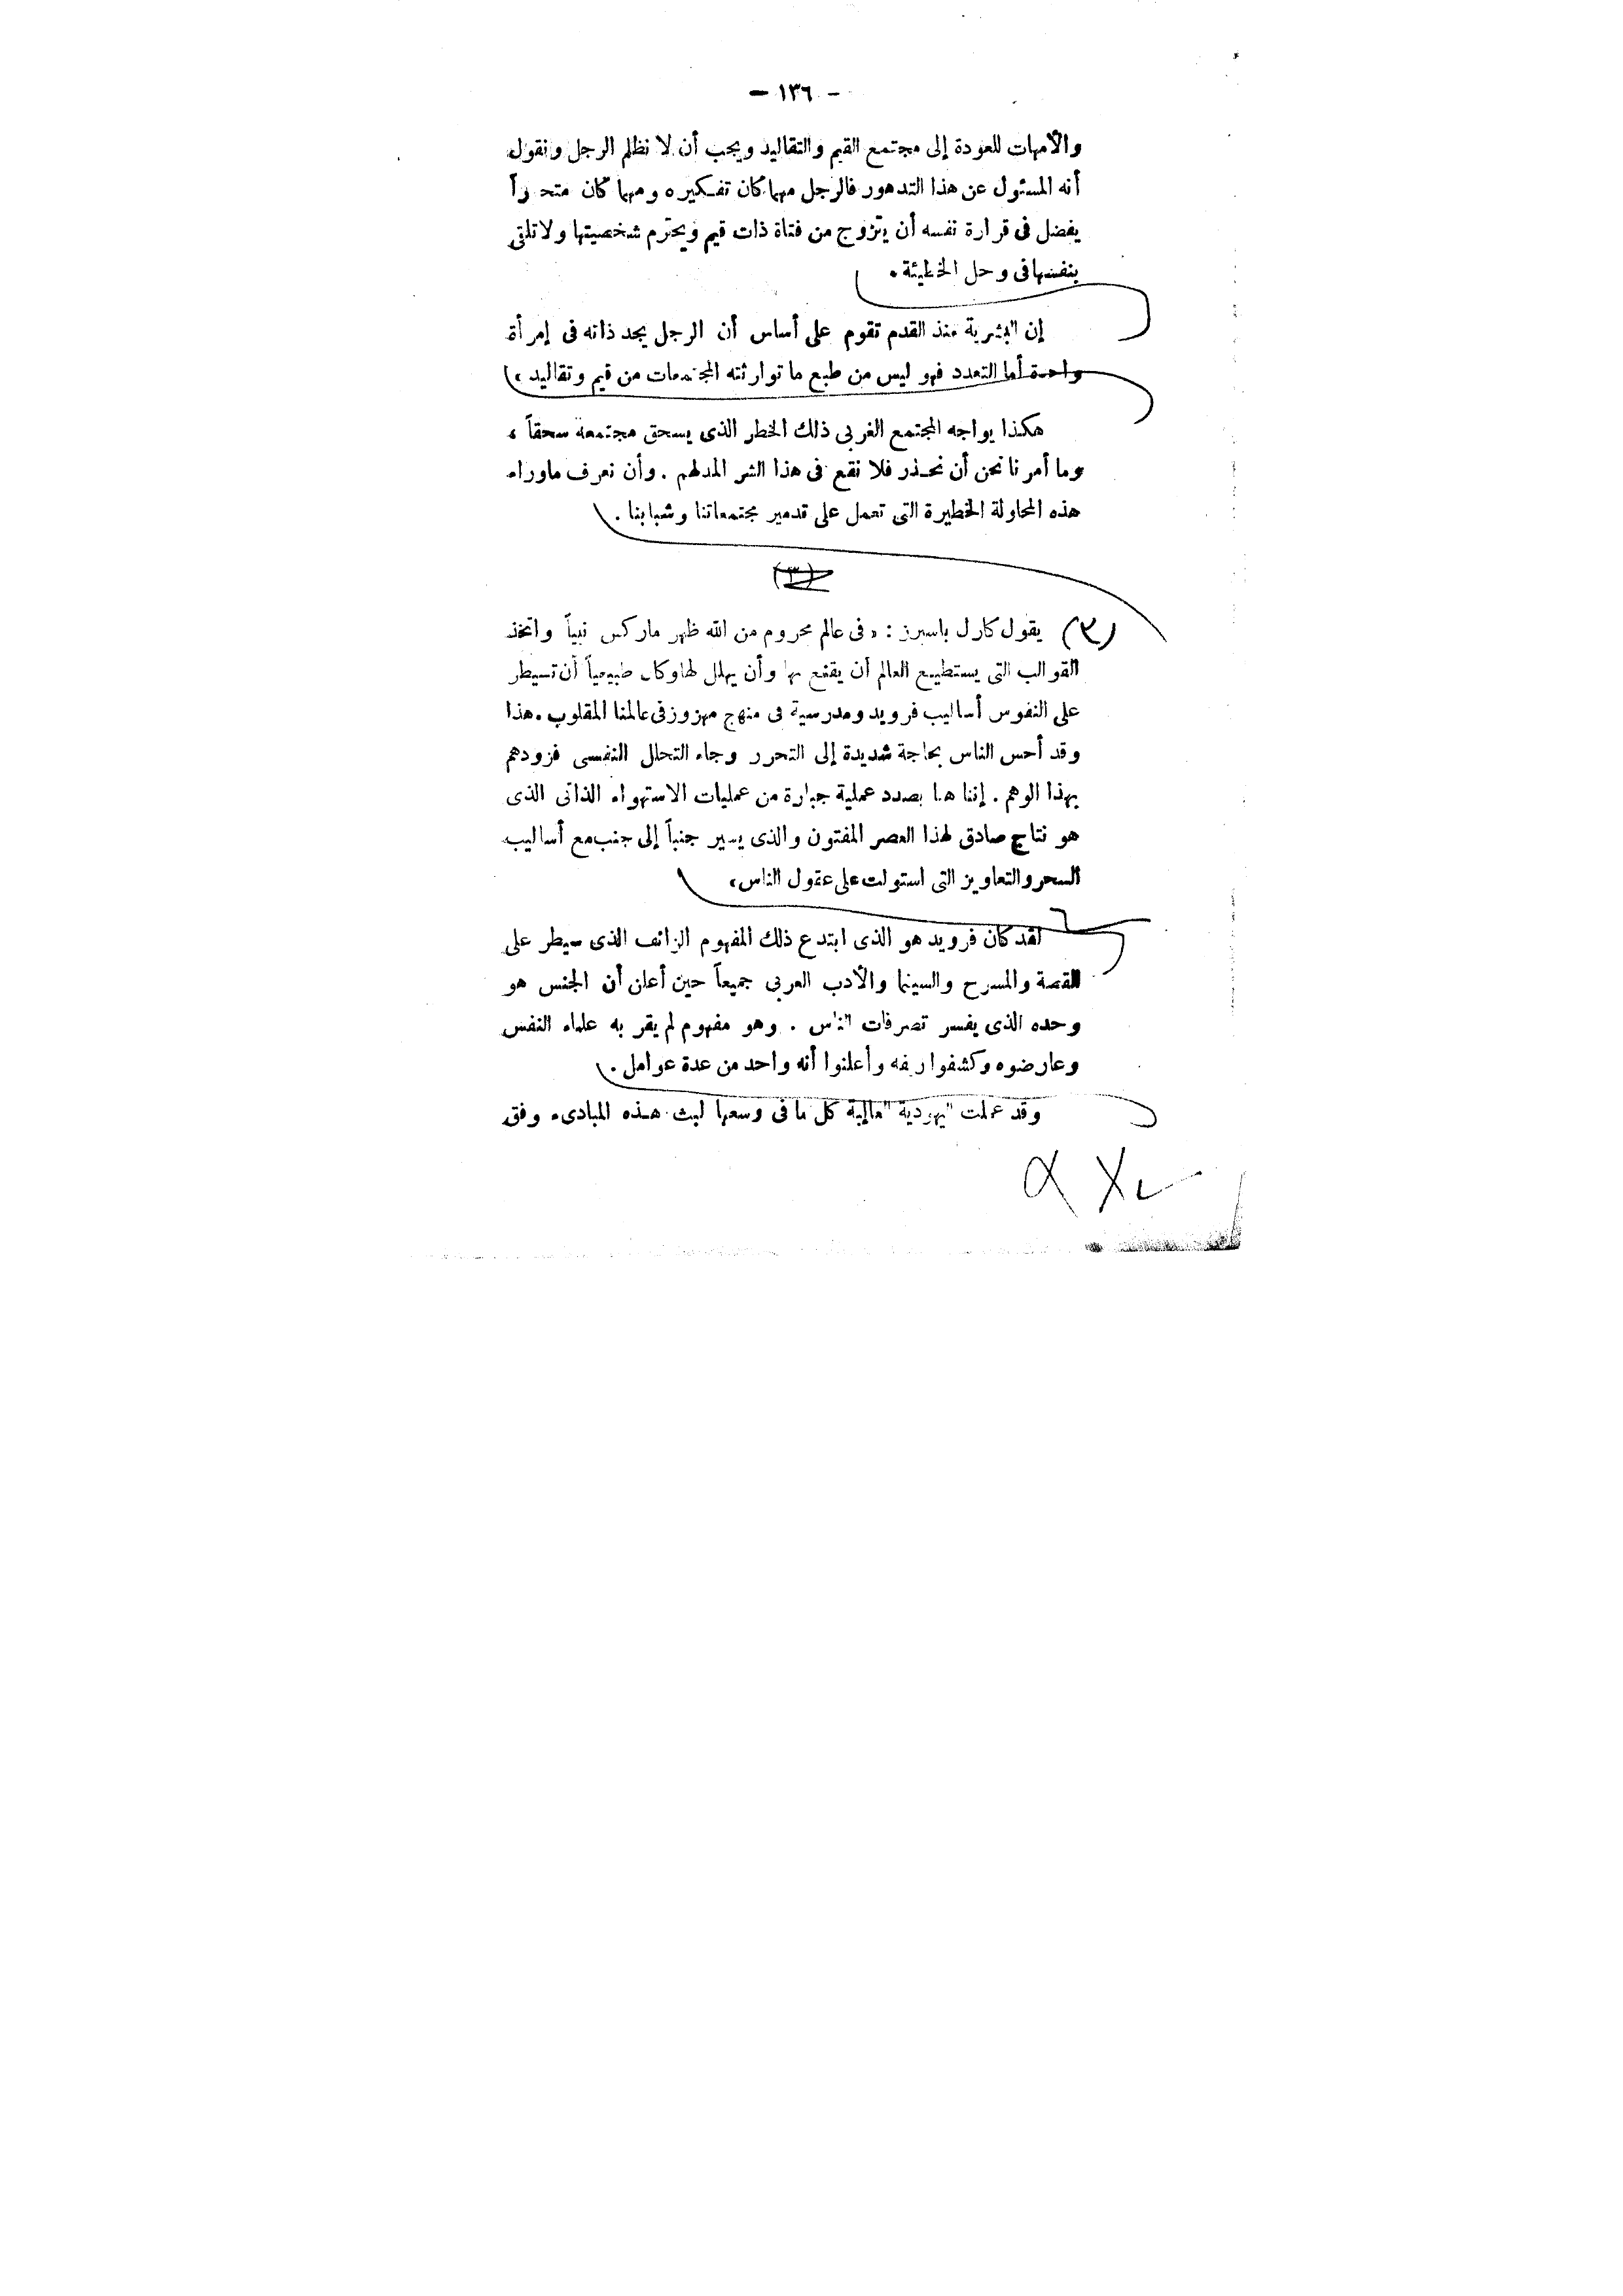 - ١٣٦ -
والأمهات للعودة إلى مجتمع القيم والتقاليد ويجب أن لا نظلم الرجل ونقول
أنه المسئول عن هذا التدهور فالرجل مهما كان تفكيره ومهما كان متحرراً
يفضل فى قرارة نفسه أن يتزوج من فتاة ذات قيم ويحترم شخصيتها ولا تلقى
بنفسها فى وحل الخطيئة .
إن البشرية منذ القدم تقوم على أساس أن الرجل يجد ذاته فى إمرأة
واحدة أما التعدد فهو ليس من طبع ما توارثته المجتمعات من قيم وتقاليد ،
هكذا يواجه المجتمع الغربى ذلك الخطر الذى يسحق مجتمعه سحقاً ،
وما أمرنا نحن أن نحذر فلا نقع فى هذا الشر المدلهم . وأن نعرف ماوراء
هذه المحاولة الخطيرة التى تعمل على تدمير مجتمعاتنا وشبابنا .
(٣)
(٣) يقول كارل باسبرز : « فى عالم محروم من الله ظهر ماركس نبياً واتخذ
القوالب التى يستطيع العالم أن يقنع بها وأن يهلل لها وكان طبيعياً أن تسيطر
على النفوس أساليب فرويد ومدرسية فى منهج مهزوز فى عالمنا المقلوب . هذا
وقد أحس الناس بحاجة شديدة إلى التحرر وجاء التحلل النفسى فزودهم
بهذا الوهم . إننا هنا بصدد عملية جبارة من عمليات الاستهواء الذاتى الذى
هو نتاج صادق لهذا العصر المفتون والذى يسير جنباً إلى جنب مع أساليب
السحر والتعاويز التى استولت على عقول الناس ،
لقد كان فرويد هو الذى ابتدع ذلك المفهوم الزائف الذى سيطر على
القصة والمسرح والسينما والأدب العربى جميعاً حين أعلن أن الجنس هو
وحده الذى يفسر تصرفات الناس . وهو مفهوم لم يقر به علماء النفس
وعارضوه وكشفوا زيفه وأعلنوا أنه واحد من عدة عوامل .
وقد عملت اليهودية العالمية كل ما فى وسعها لبث هذه المبادىء وفق